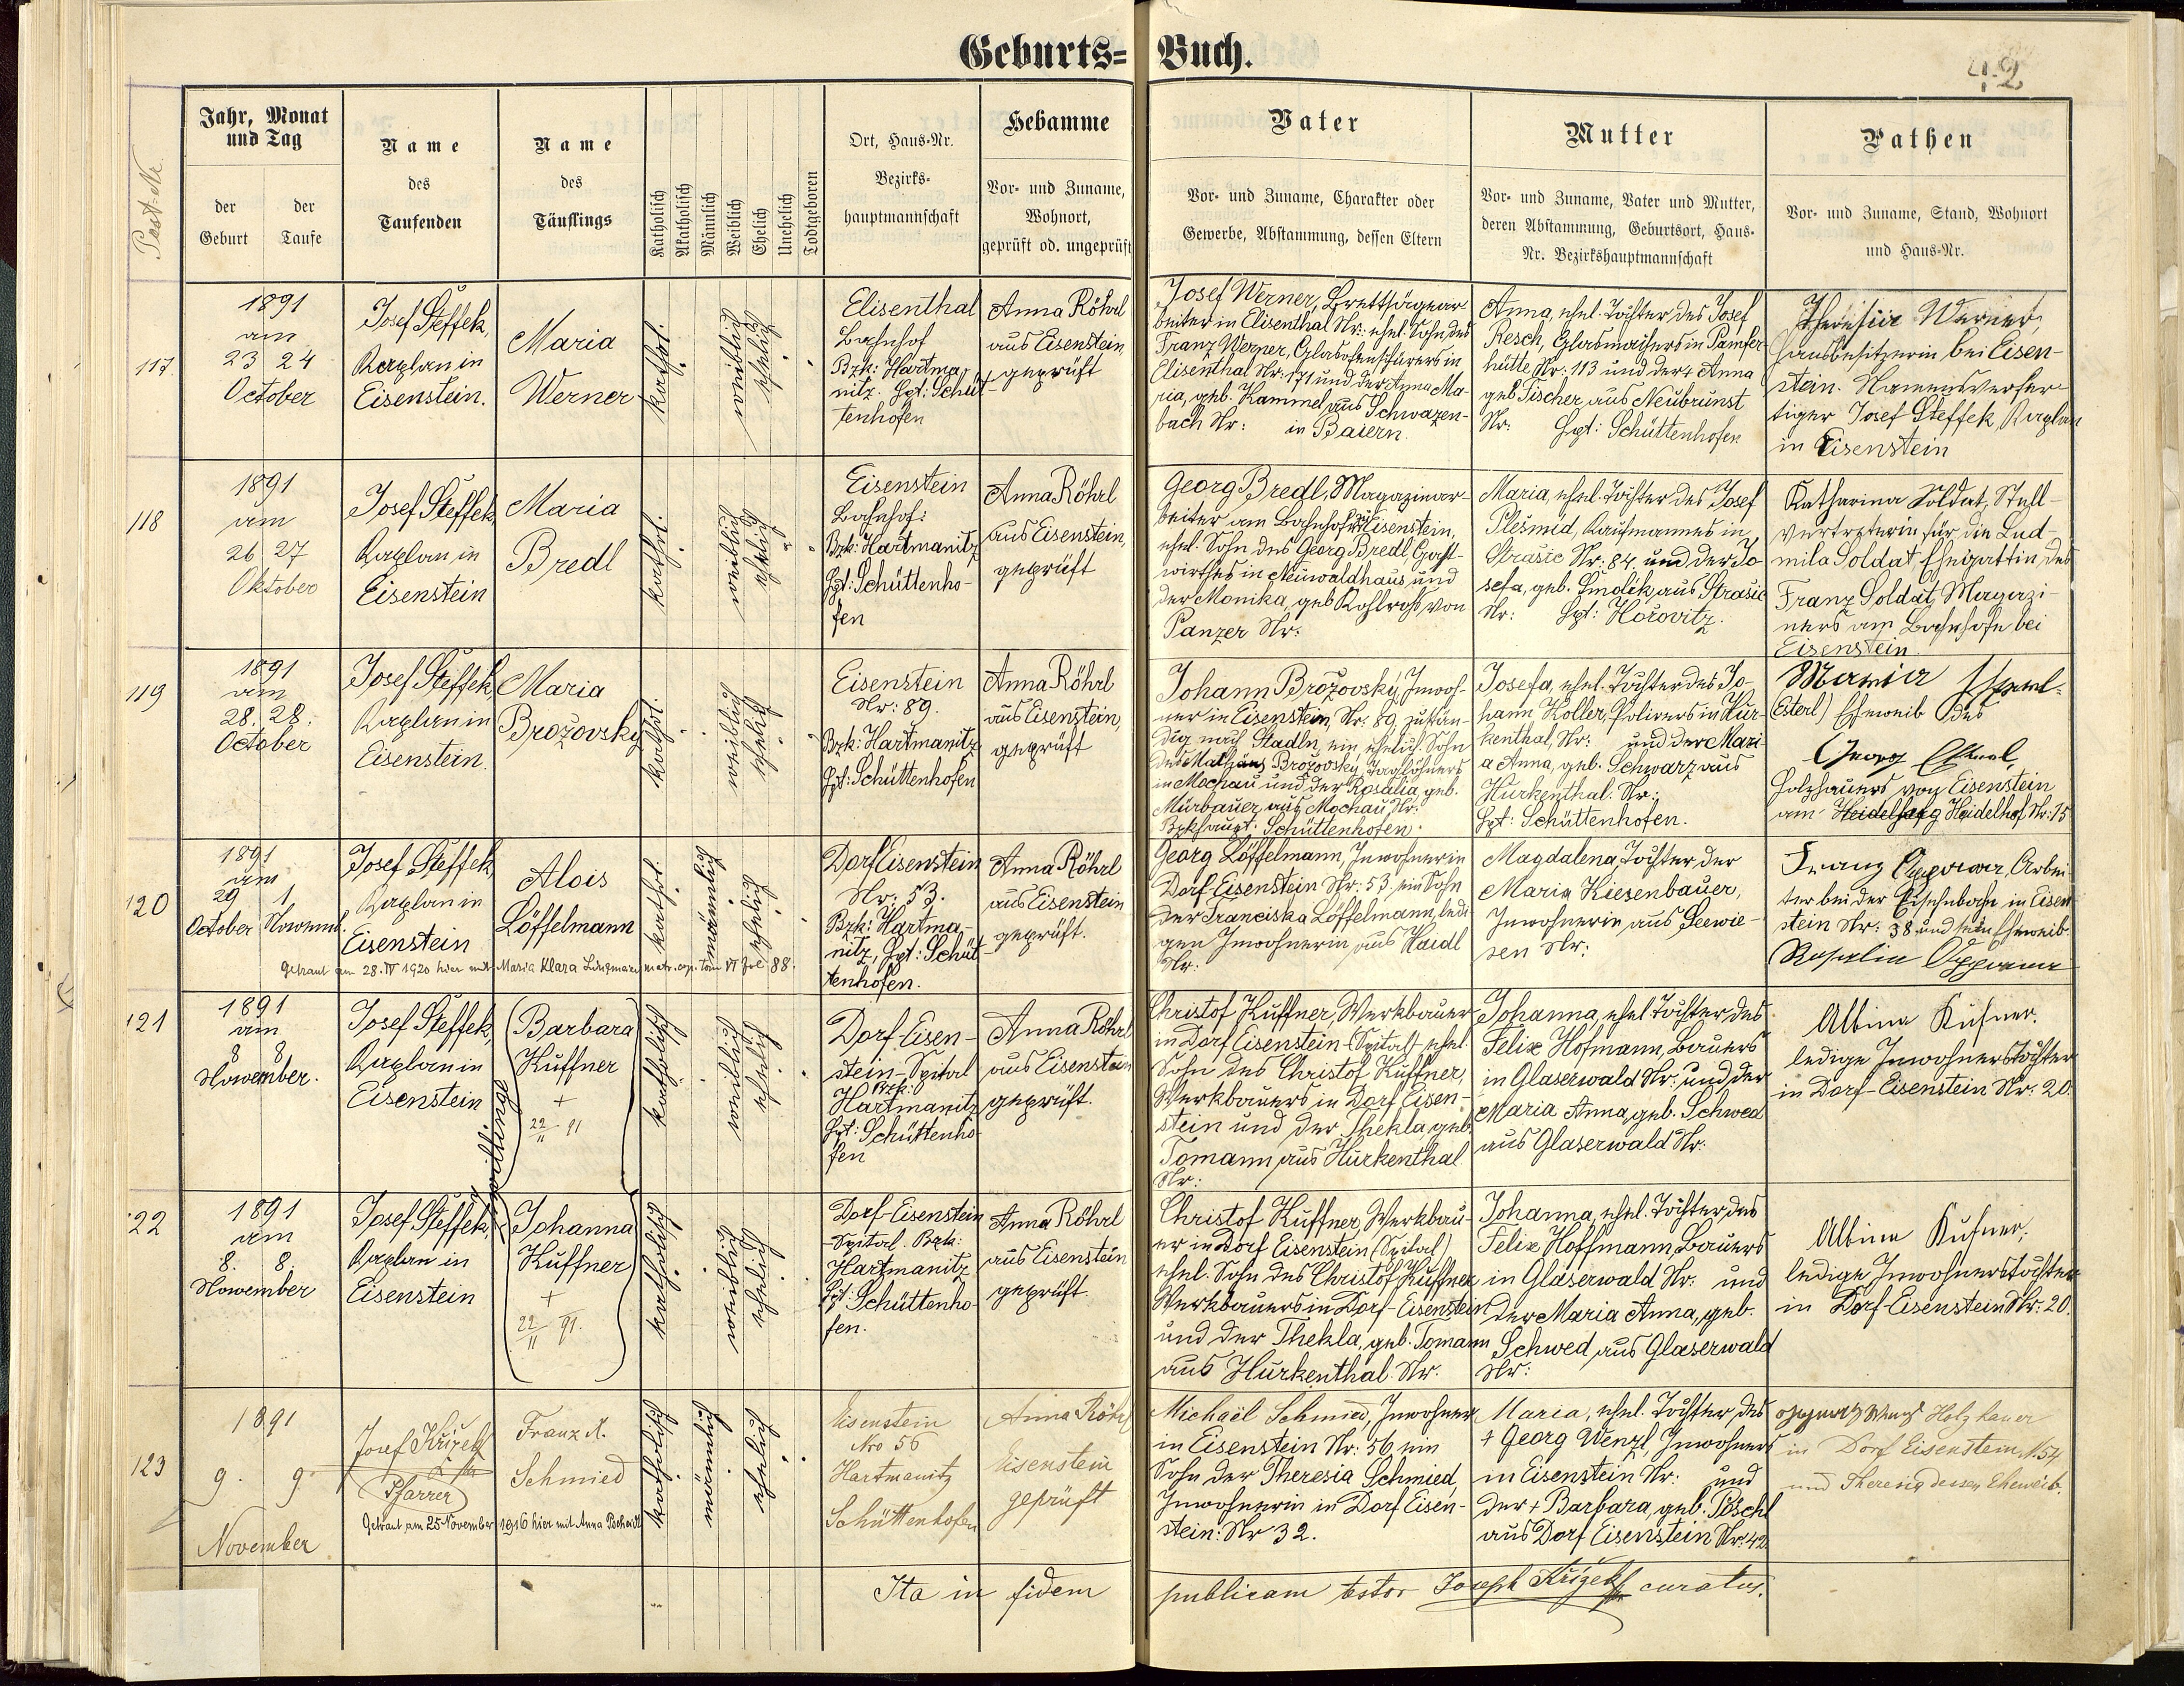 Geburts=Buch.
42
Post-Nr.
Jahr, Monat
und Tag
der
Geburt
der
Taufe
Name
des
Taufenden
Name
des
Täuflings
Katholisch
Akatholisch
Männlich
Weiblich
Ehelich
Unehelich
Todtgeboren
Ort, Haus-Nr.
Bezirks-
hauptmannschaft
Hebamme
Vor- und Zuname,
Wohnort,
geprüft od. ungeprüft
Vater
Vor- und Zuname, Charakter oder
Gewerbe, Abstammung, dessen Eltern
Mutter
Vor- und Zuname, Vater und Mutter,
deren Abstammung, Geburtsort, Haus-
Nr. Bezirkshauptmannschaft
Pathen
Vor- und Zuname, Stand, Wohnort
und Haus-Nr.
117.
1891
am
23 24
October
Josef Steffek,
Kaplan in
Eisenstein.
Maria
Werner
kathol.
weiblich
ehelich
Elisenthal
Bahnhof
Bzk: Hartma-
nitz. Hpt: Schüt-
tenhofen
Anna Röhrl
aus Eisenstein,
geprüft
Josef Werner, Brettsägear-
beiter in Elisenthal Nr: ehel. Sohn des
Franz Werner, Glasofenschürers in
Elisenthal Nr: 171 und der Anna Ma-
ria, geb. Kammel aus Schwazen-
bach Nr: in Baiern.
Anna, ehel. Tochter des Josef
Resch, Glasmachers in Pamfer-
hütte Nr: 113 und der + Anna
geb Fischer aus Neubrunst
Nr: Hpt: Schüttenhofen
Theresia Werner,
Hausbesitzerin bei Eisen-
stein. Namensverfer-
tiger Josef Steffek Kaplan
in Eisenstein
118
1891
am
26 27
Oktober
Josef Steffek,
Kaplan in
Eisenstein
Maria
Bredl
kathol.
weiblich
ehelich
Eisenstein
Bahnhof:
Bzk: Hartmanitz
Hpt: Schüttenho-
fen
Anna Röhrl
aus Eisenstein,
geprüft
Georg Bredl, Magazinar-
beiter am Bahnhof Eisenstein,
ehel. Sohn des Georg Bredl, Gast-
wirthes in Neuwaldhaus und
der Monika, geb Kohlross von
Panzer Nr:
Maria, ehel. Tochter des Josef
Plesmid, Kaufmannes in
Strašic Nr: 84 und der Jo-
sefa, geb. Smolik aus Strašic
Nr: Hpt: Horovitz.
Katharina Soldat, Stell-
vertreterin für die Lud-
mila Soldat, Ehegattin des
Franz Soldat, Magazi-
neurs am Bahnhofe bei
Eisenstein.
119
1891
am
28. 28.
October
Josef Steffek,
Kaplan in
Eisenstein.
Maria
Brožovsky
kathol.
weiblich
ehelich
Eisenstein
Nr: 89.
Bzk: Hartmanitz
Hpt: Schüttenhofen
Anna Röhrl
aus Eisenstein,
geprüft
Johann Brožovský, Inwoh-
ner in Eisenstein, Nr. 89 zustän-
dig nach Stadln, ein ehelich. Sohn
des Mathäus Brožovský, Taglöhners
in Mochau und der Rosalia, geb.
Mürbauer, aus Mochau Nr:
Bzkhaupt: Schüttenhofen.
Josefa, ehel. Tochter des Jo-
hann Koller, Polirers in Hur-
kenthal, Nr: und der Mari-
a Anna, geb. Schwarz aus
Hurkenthal. Nr:
Hpt: Schüttenhofen.
Maria
Esterl) Eheweib des
Georg
Holzhauers von Eisenstein
am Heidelberg Heidelhof Nr: 15
120
1891
am
29 1
October Novemb.
Josef Steffek,
Kaplan in
Eisenstein
Alois
Löffelmann
kathol.
männlich
ehelich
Getraut am 28. IV 1920 hier mit Maria Klara Lingmaier matr. cop. tom VI fol 88.
Dorf Eisenstein
Nr: 53.
Bzk: Hartma-
nitz, Hpt: Schüt-
tenhofen.
Anna Röhrl
aus Eisenstein
geprüft.
Georg Löffelmann, Inwohner in
Dorf-Eisenstein Nr: 53 ein Sohn
der Franciska Löffelmann, ledi-
gen Inwohnerin aus Haidl
Nr.
Magdalena, Tochter der
Maria Kiesenbauer,
Inwohnerin aus Seewie-
sen Nr:
Franz Oppower, Arbei-
ter bei der Eisenbahn in Eisen-
stein Nr: 38 und sein Eheweib
Rosalia
121
1891
am
8 8
November.
Josef Steffek,
Kaplan in
Eisenstein
Zwillinge
Barbara
Kuffner
+
22/11 91
katholisch
weiblich
ehelich
Dorf-Eisen-
stein-Spital
Bzk:
Hartmanitz
Hpt: Schüttenho-
fen
Anna Röhrl
aus Eisenstein
geprüft.
Christof Kuffner, Werkbauer
in Dorf Eisenstein (Spital) ehel.
Sohn des Christof Kuffner,
Werkbauers in Dorf Eisen-
stein und der Thekla, geb.
Tomann aus Hurkenthal
Nr:
Johanna, ehel Tochter des
Felix Hofmann, Bauers
in Glaserwald Nr: und der
Maria Anna, geb. Schwed
aus Glaserwald Nr:
Albina Kufner.
ledige Inwohnerstochter
in Dorf-Eisenstein Nr: 20.
122
1891
am
8. 8.
November
Josef Steffek,
Kaplan in
Eisenstein
Johanna
Kuffner
+
22/11 91.
katholisch
weiblich
ehelich
Dorf-Eisenstein
-Spital. Bzk:
Hartmanitz
Hpt: Schüttenho-
fen.
Anna Röhrl
aus Eisenstein
geprüft.
Christof Kuffner, Werkbau-
er in Dorf Eisenstein (Spital)
ehel. Sohn des Christof Kuffner
Werkbauers in Dorf-Eisenstein
und der Thekla, geb. Tomann
aus Hurkenthal. Nr.
Johanna, ehel. Tochter des
Felix Hoffmann, Bauers
in Glaserwald Nr: und
der Maria Anna, geb.
Schwed aus Glaserwald
Nr:
Albina Kufner,
ledige Inwohnerstochter
in Dorf-Eisenstein Nr: 20.
123
1891
9. 9.
November
Josef Křížek
Pfarrer
Franz X.
Schmied
katholisch
männlich
ehelich
Getraut am 25 November 1916 hier mit Anna Pscheidl
Eisenstein
Nro 56
Hartmanitz
Schüttenhofen
Anna Röhrl
Eisenstein
geprüft
Michaël Schmied, Inwohner
in Eisenstein Nr: 56 ein
Sohn der Theresia Schmied,
Inwohnerin in Dorf Eisen-
stein: Nr 32.
Maria, ehel. Tochter des
+ Georg Wenzl, Inwohners
in Eisenstein Nr: und
der + Barbara, geb. Pöschl
aus Dorf Eisenstein Nr: 42.
Holzhauer
in Dorf Eisenstein, N. 54
und Theresia dessen Eheweib.
Ita in fidem publicam testor Joseph Křížek curatus.